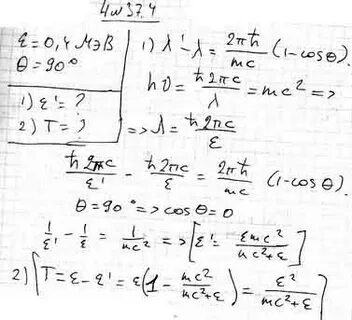 Чи 37.4
ε = 0,4 МэВ
θ = 90°
1) ε' = ?
2) T = ?
1) λ' - λ = 2πħ/mc (1 - cosθ).
hυ = ħ2πc/λ = mc² =>
=> λ = ħ2πc/ε
ħ2πc/ε' - ħ2πc/ε = 2πħ/mc (1 - cosθ).
θ = 90° => cosθ = 0
1/ε' - 1/ε = 1/mc² => [ε' = εmc²/mc²+ε]
2) [T = ε - ε' = ε(1 - mc²/mc²+ε) = ε²/mc²+ε]